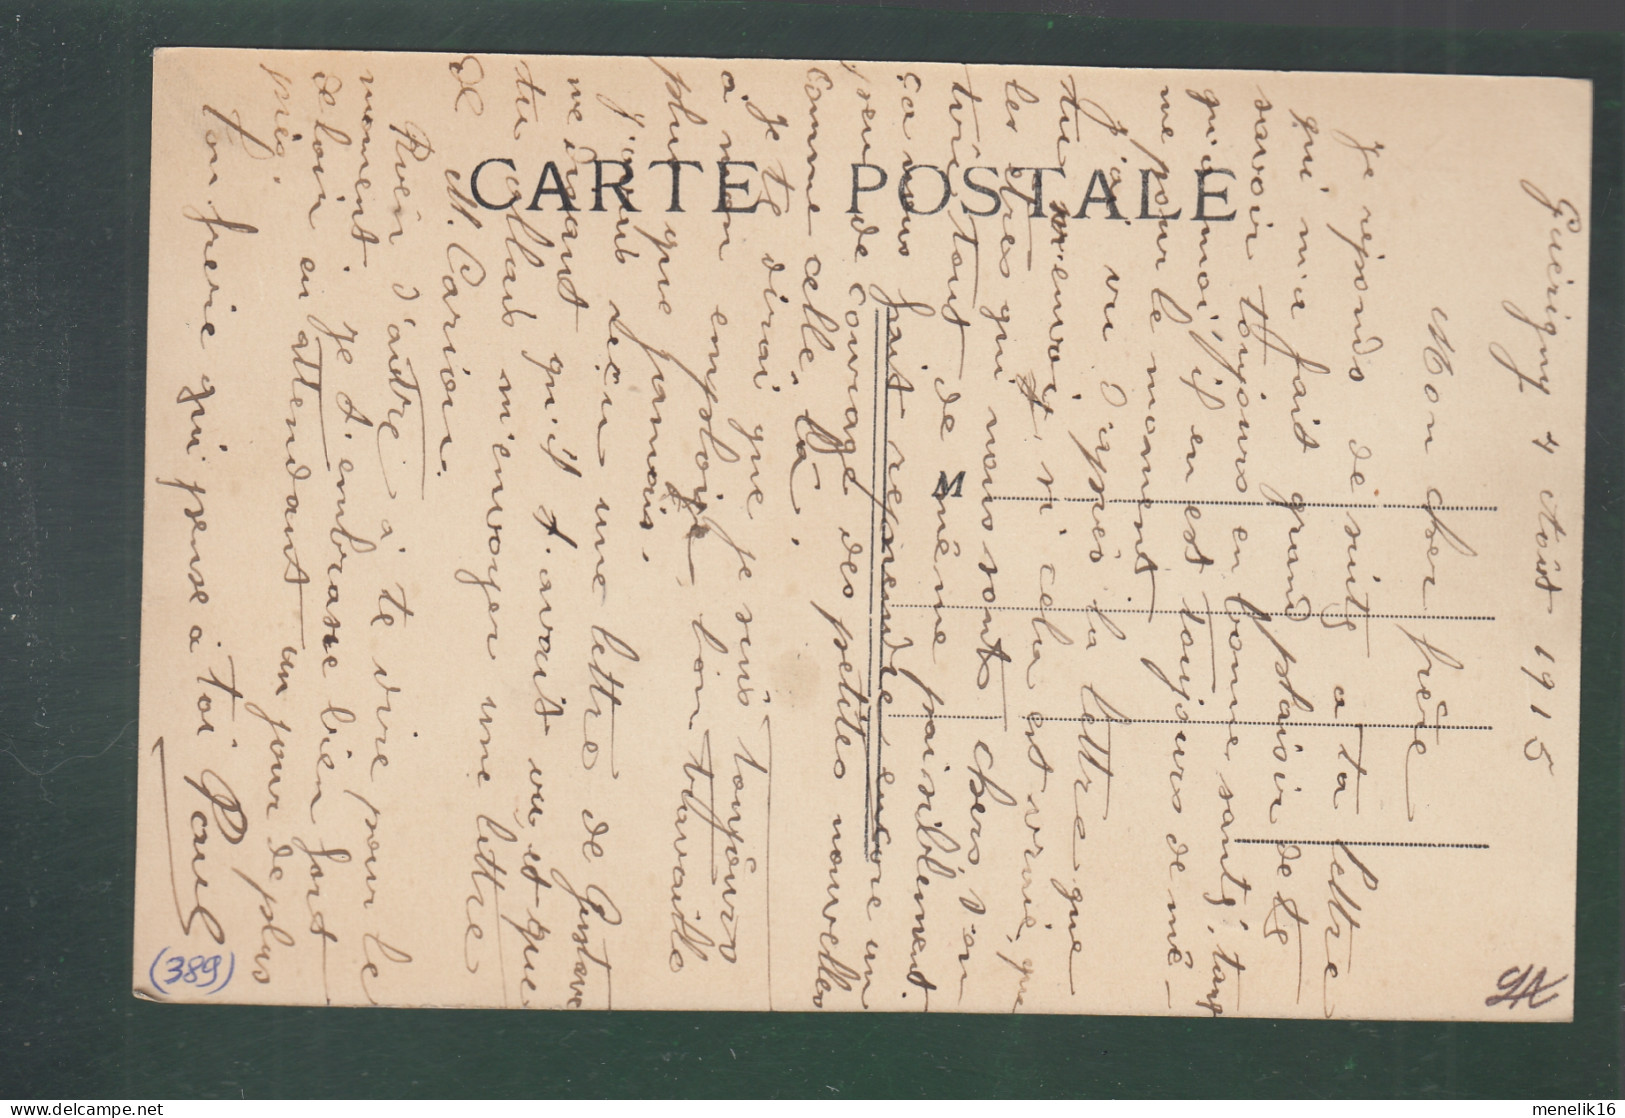 CARTE POSTALE
M
Guérigny 4 Août 1915
Mon cher frère
Je réponds de suite a ta lettre
qui m'a fait grand plaisir de te
savoir toujours en bonne santé, tant
qu'a moi il en est toujours de mê-
me pour le moment
J'ai vu d'après la lettre que
tu m'envoi, si cela est vraie, que
les êtres qui nous sont chers, s'en
tirs tout de même paisiblement
ça nous fait reprendre encore un
peu de courage des petites nouvelles
comme celle la.
Je te dirai que je suis toujours
a mon emploie, l'on travaille
plus que jamais.
J'avais reçu une lettre de Gustave
me disant qu'il t'avait vu et que
tu allais m'envoyer une lettre
de M. Carion.
Rien d'autre à te dire pour le
moment. Je t'embrasse bien fort
de loin en attendant un jour de plus
près.
Ton frère qui pense à toi Paul
(389)
menelik16